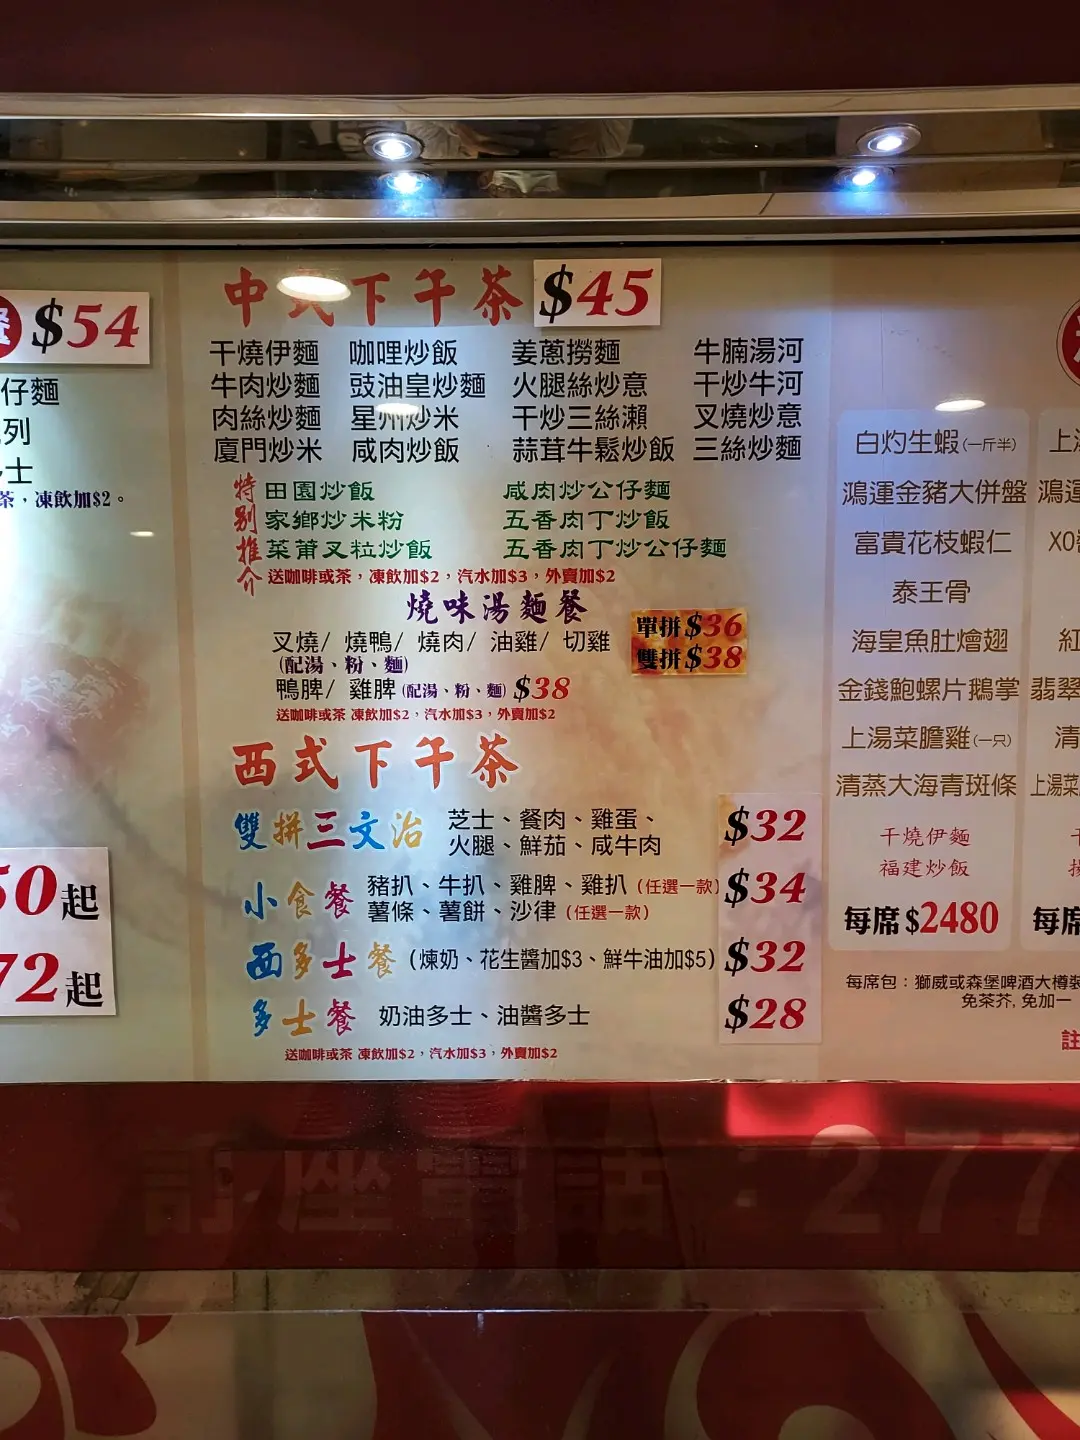 餐 $54
仔麵
列
多士
茶，凍飲加$2。
50起
72起
中式下午茶 $45
干燒伊麵 咖哩炒飯 姜蔥撈麵 牛腩湯河
牛肉炒麵 豉油皇炒麵 火腿絲炒意 干炒牛河
肉絲炒麵 星州炒米 干炒三絲瀨 叉燒炒意
廈門炒米 咸肉炒飯 蒜茸牛鬆炒飯 三絲炒麵
特別推介
田園炒飯 咸肉炒公仔麵
家鄉炒米粉 五香肉丁炒飯
菜莆叉粒炒飯 五香肉丁炒公仔麵
送咖啡或茶，凍飲加$2，汽水加$3，外賣加$2
燒味湯麵餐
叉燒/ 燒鴨/ 燒肉/ 油雞/ 切雞
(配湯、粉、麵)
單拼$36
雙拼$38
鴨脾/ 雞脾(配湯、粉、麵) $38
送咖啡或茶 凍飲加$2，汽水加$3，外賣加$2
西式下午茶
雙拼三文治 芝士、餐肉、雞蛋、 $32
火腿、鮮茄、咸牛肉
小食餐 豬扒、牛扒、雞脾、雞扒(任選一款) $34
薯條、薯餅、沙律(任選一款)
西多士餐 (煉奶、花生醬加$3、鮮牛油加$5) $32
多士餐 奶油多士、油醬多士 $28
送咖啡或茶 凍飲加$2，汽水加$3，外賣加$2
白灼生蝦(一斤半)
鴻運金豬大併盤
富貴花枝蝦仁
泰王骨
海皇魚肚燴翅
金錢鮑螺片鵝掌
上湯菜膽雞(一只)
清蒸大海青斑條
干燒伊麵
福建炒飯
每席$2480
上
鴻運
XO
紅
翡翠
清
上湯菜
每席
每席包：獅威或森堡啤酒大樽裝
免茶芥, 免加一
註
訂座電話：277